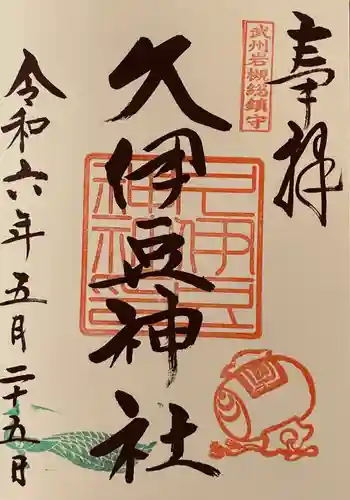 奉拝
武州岩槻総鎮守
久伊豆神社
久伊豆神社印
令和六年五月二十五日